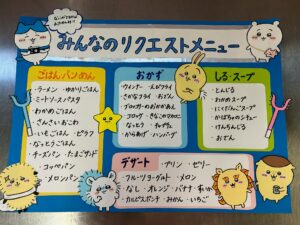 みんなのリクエストメニュー
ごはん・パン・めん
・ラーメン ・ゆかりごはん
・ミートソーススパスタ
・わかめごはん
・さんさいおこわ
・いもごはん ・ピラフ
・なっとうごはん
・チーズパン ・たまごサンド
・コッペパン
・メロンパン
おかず
・ウィンナー ・えびフライ
・さかなフライ ・おでん
・コロッケ
・なっとう
・からあげ ・ハンバーグ
しる・スープ
・とんじる
・わかめスープ
・にくだんごスープ
・かぼちゃのシチュー
・けんちんじる
・おでん
デザート
・プリン ・ゼリー
・フルーツヨーグルト ・メロン
・なし ・オレンジ ・バナナ ・すいか
・カルピスポンチ ・みかん ・いちご